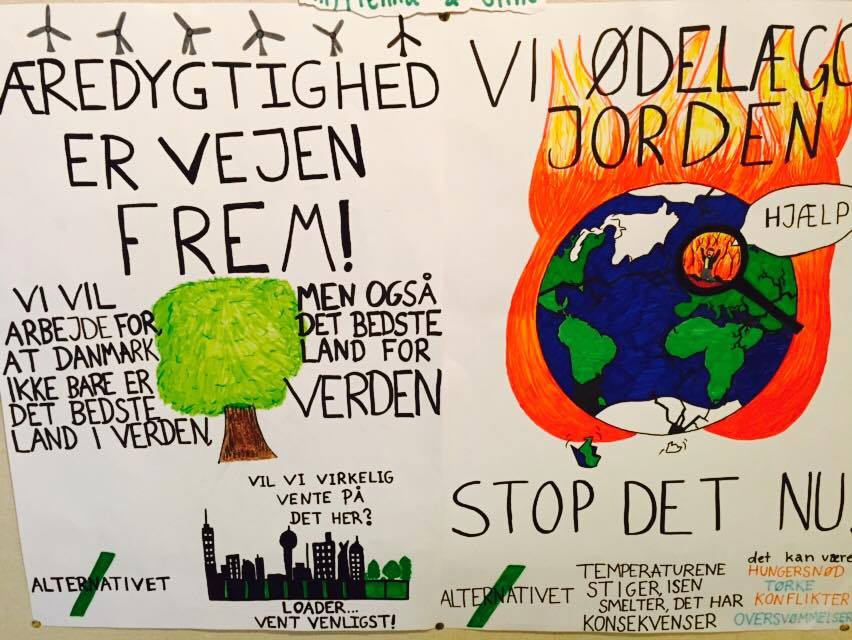 ÆREDYGTIGHED
ER VEJEN
FREM!
VI VIL
ARBEJDE FOR,
AT DANMARK
IKKE BARE ER
DET BEDSTE
LAND I VERDEN,
MEN OGSÅ
DET BEDSTE
LAND FOR
VERDEN
VIL VI VIRKELIG
VENTE PÅ
DET HER?
LOADER...
VENT VENLIGST!
ALTERNATIVET
VI ØDELÆGG
JORDEN
HJÆLP
STOP DET NU!
ALTERNATIVET
TEMPERATURENE
STIGER, ISEN
SMELTER, DET HAR
KONSEKVENSER
det kan være
HUNGERSNØD
TØRKE
KONFLIKTER
OVERSVØMMELSER